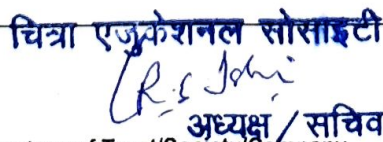 चित्रा एजुकेशनल सोसाइटी
R.S Joshi
अध्यक्ष / सचिव